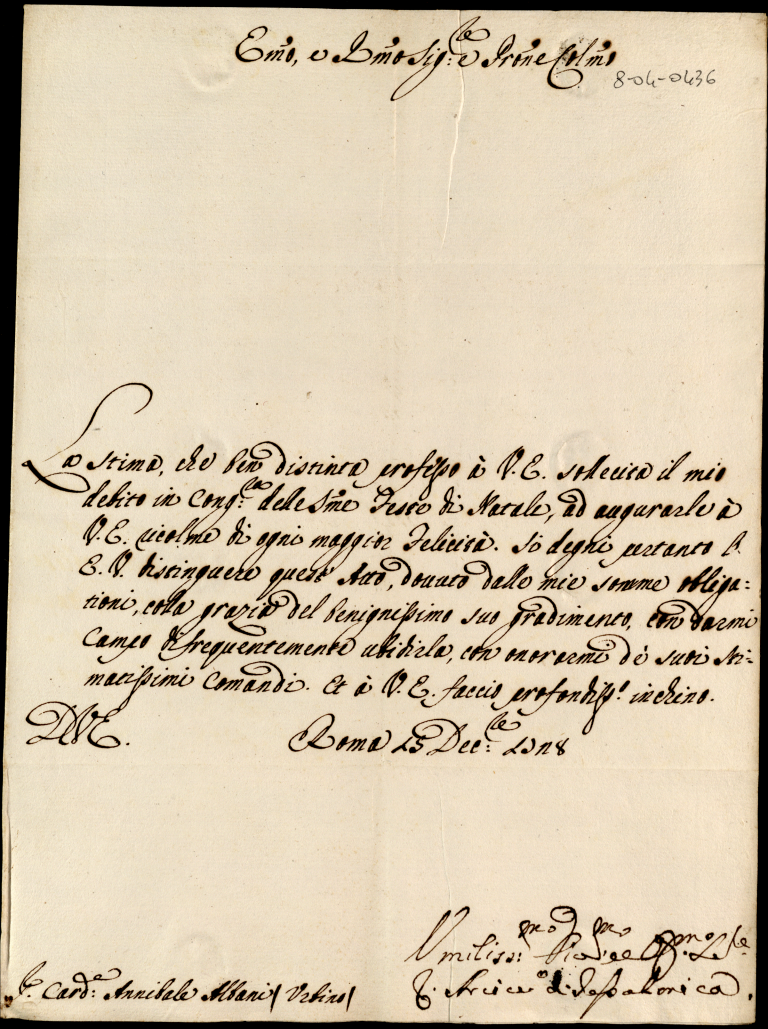 Emo, e Rmo Sig:re Prone Colmo
8-04-0436
La stima, che ben distinta professo à V.E. sollecita il mio
debito in Cong:za delle Sme Feste di Natale, ad augurarle à
V.E. ricolme di ogni maggior Felicità. Si degni pertanto l'
E.V. distinguere quest' Atto, douuto dalle mie somme obliga=
tioni, colla grazia del benignissimo suo gradimento, con darmi
Campo di frequentemente ubidirla, con onorarmi de suoi sti=
matissimi Comandi. Et à V.E. faccio profondiss: inchino.
DVE.
Roma 25 Dec:re 1728
Umiliss:mo
F. Arciu:o di Tessalonica.
Sr. Card:e Annibale Albani (Urbino)